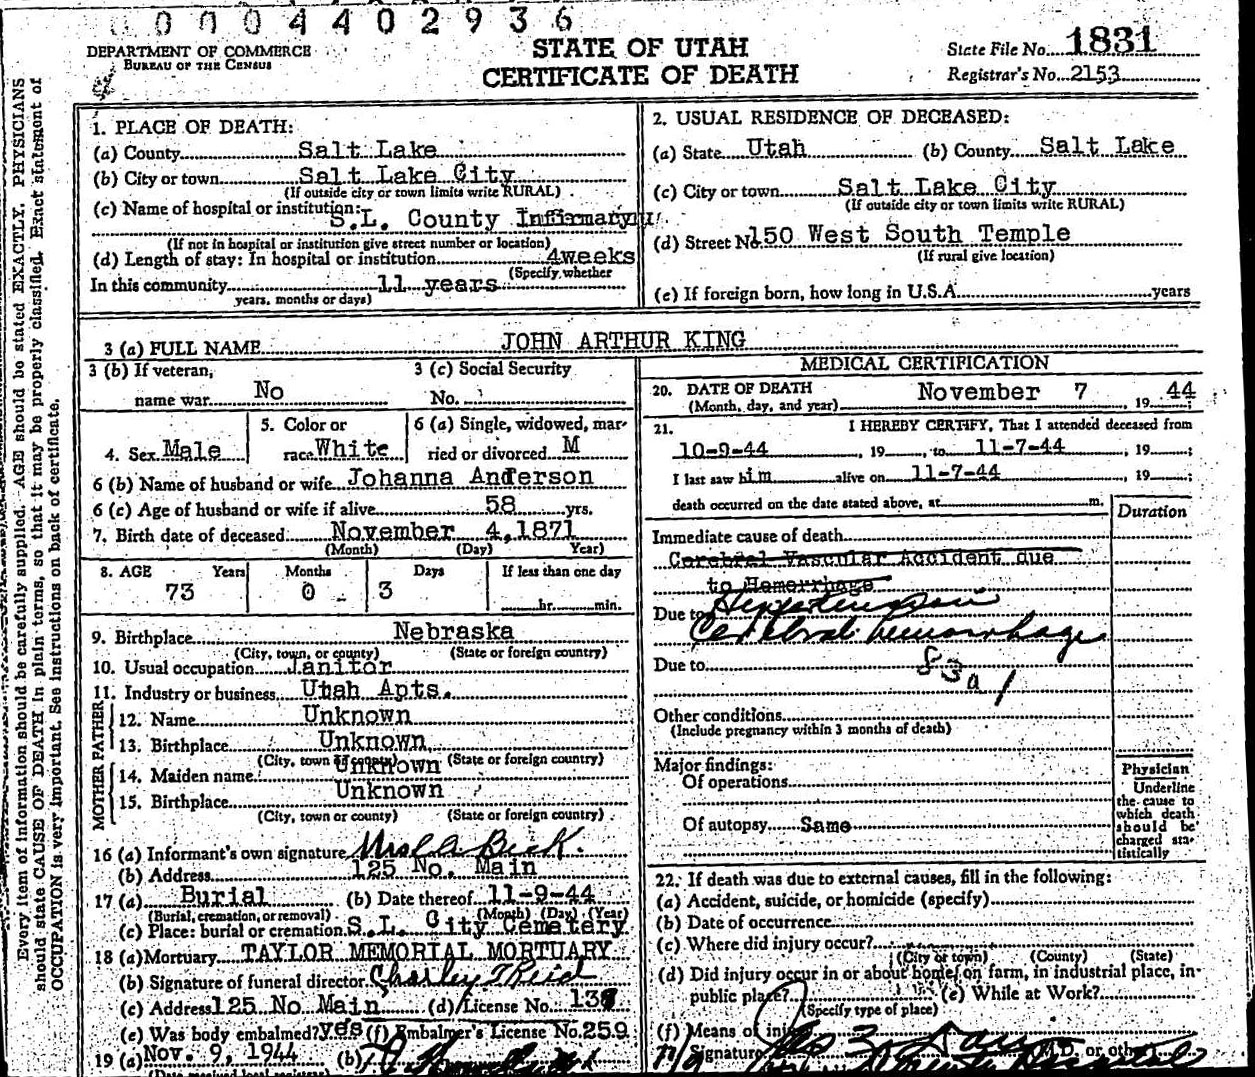 0004402936
DEPARTMENT OF COMMERCE
BUREAU OF THE CENSUS
STATE OF UTAH
CERTIFICATE OF DEATH
State File No. 1831
Registrar's No. 2153
Every item of information should be carefully supplied. AGE should be stated EXACTLY. PHYSICIANS
should state CAUSE OF DEATH in plain terms, so that it may be properly classified. Exact statement of
OCCUPATION is very important. See instructions on back of certificate.
1. PLACE OF DEATH:
(a) County Salt Lake
(b) City or town Salt Lake City
(If outside city or town limits write RURAL)
(c) Name of hospital or institution:
S.L. County Infirmary
(If not in hospital or institution give street number or location)
(d) Length of stay: In hospital or institution 4weeks
(Specify whether
In this community 11 years
years, months or days)
2. USUAL RESIDENCE OF DECEASED:
(a) State Utah (b) County Salt Lake
(c) City or town Salt Lake City
(If outside city or town limits write RURAL)
(d) Street No. 150 West South Temple
(If rural give location)
(e) If foreign born, how long in U.S.A. years
3 (a) FULL NAME JOHN ARTHUR KING
3 (b) If veteran,
name war No
3 (c) Social Security
No.
4. Sex Male
5. Color or
race White
6 (a) Single, widowed, mar-
ried or divorced M
6 (b) Name of husband or wife Johanna Anderson
6 (c) Age of husband or wife if alive 58 yrs.
7. Birth date of deceased November 4, 1871
(Month) (Day) Year)
8. AGE Years Months Days If less than one day
73 0 3 hr. min.
9. Birthplace Nebraska
(City, town, or county) (State or foreign country)
10. Usual occupation Janitor
11. Industry or business Utah Apts.
FATHER
12. Name Unknown
13. Birthplace Unknown
(City, town or county) (State or foreign country)
MOTHER
14. Maiden name Unknown
15. Birthplace Unknown
(City, town or county) (State or foreign country)
16 (a) Informant's own signature Beck.
(b) Address 125 No. Main
17 (a) Burial (b) Date thereof 11-9-44
(Burial, cremation, or removal) (Month) (Day) (Year)
(c) Place: burial or cremation S.L. City Cemetery
18 (a) Mortuary TAYLOR MEMORIAL MORTUARY
(b) Signature of funeral director Charley T Reid
(c) Address 125 No Main (d) License No. 138
(e) Was body embalmed? yes (f) Embalmer's License No. 259
19 (a) Nov. 9, 1944 (b)
(Date received local registrar)
MEDICAL CERTIFICATION
20. DATE OF DEATH November 7 19 44
(Month, day, and year)
21. I HEREBY CERTIFY, That I attended deceased from
10-9-44, 19, to 11-7-44, 19;
I last saw him alive on 11-7-44, 19;
death occurred on the date stated above, at m.
Duration
Immediate cause of death
Cerebral Vascular Accident due
to Hemorrhage
Due to Hypertension
Cerebral hemorrhage
Due to
83a 1
Other conditions
(Include pregnancy within 3 months of death)
Major findings:
Of operations
Of autopsy Same
Physician
Underline
the cause to
which death
should be
charged sta-
tistically
22. If death was due to external causes, fill in the following:
(a) Accident, suicide, or homicide (specify)
(b) Date of occurrence
(c) Where did injury occur?
(City or town) (County) (State)
(d) Did injury occur in or about home, on farm, in industrial place, in-
public place? (e) While at Work?
(Specify type of place)
(f) Means of injury
Signature M.D. or other